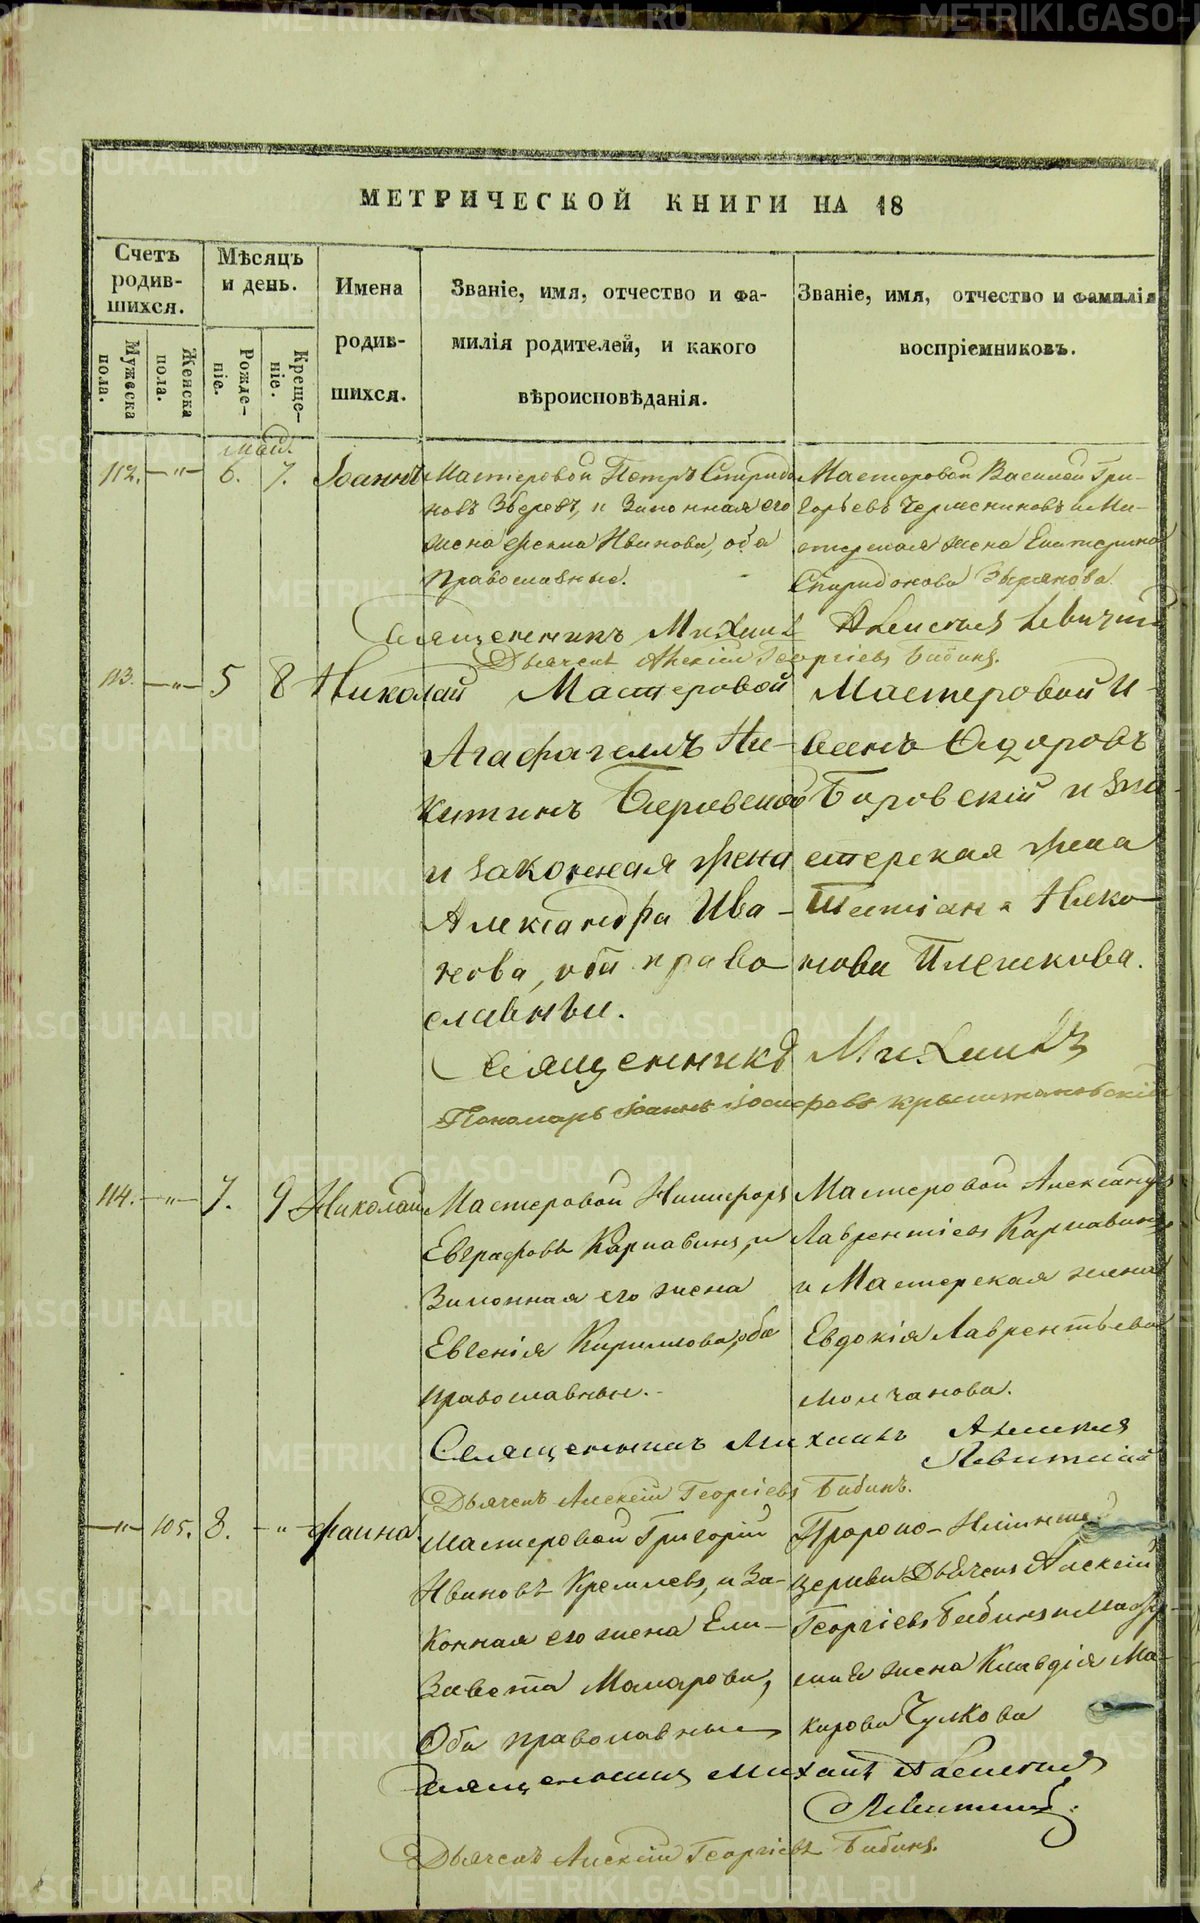 METRIKI.GASO-URAL.RU
МЕТРИЧЕСКОЙ КНИГИ НА 18
Счетъ родив-шихся.
Мѣсяцъ и день.
Имена родив-шихся.
Званіе, имя, отчество и фа-
милія родителей, и какого
вѣроисповѣданія.
Званіе, имя, отчество и фамилія
воспріемниковъ.
Мужеска пола.
Женска пола.
Рожде-ніе.
Креще-ніе.
Май.
112. — " — 6. 7. Іоаннъ
Мастеровой Петръ Спиридо
новъ Зверевъ, и Законная его
жена Ивановa, оба
православные.
Мастеровой Василей Гри-
горьевъ и Ма-
стерская жена Екатерина
Спиридонова Зырянова.
Священникъ Михаилъ Алексіевъ Левитскій
Дьячекъ Алексій Георгіевъ Бабинъ.
113. — " — 5 8 Николай
Мастеровой
Агафангелъ Ни-
китинъ Боровской
и законная жена
Александра Ива-
нова, оба право
славныи.
Мастеровой И-
Сидоровъ
Боровскій и Ма-
стерская жена
Татіана Нико
нова Плешкова.
Священникъ Михаилъ
Пономарь Іоаннъ Іосифовъ
114. — " — 7. 9 Николай
Мастеровой Никифоръ
Евграфовъ Карнавинъ, и
Законная его жена
Евгенія Кириллова, оба
православные.
Мастеровой Александръ
Лаврентіевъ Карнавинъ
и Мастерская жена
Евдокія Лаврентьева
Молчанова.
Священникъ Михаилъ Алексіевъ
Левитскій
Дьячекъ Алексій Георгіевъ Бабинъ.
— " — 105. 8. — " — Фаина
Мастеровой Григорій
Ивановъ Кремлевъ, и За-
конная его жена Ели-
завета Макарова,
Оба православные
Пророко-Ильинской
церкви Дьячекъ Алексій
Георгіевъ Бабинъ и Масте-
жена Клавдія Ма-
карова Чулкова
Священникъ Михаилъ Алексіевъ
Левитскій.
Дьячекъ Алексій Георгіевъ Бабинъ.